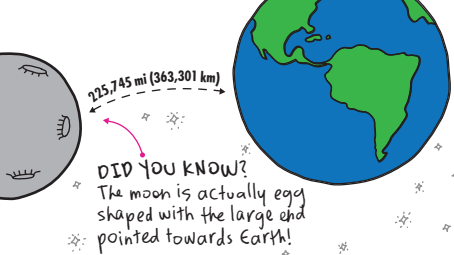 225,745 mi (363,301 km)
DID YOU KNOW?
The moon is actually egg
shaped with the large end
pointed towards Earth!